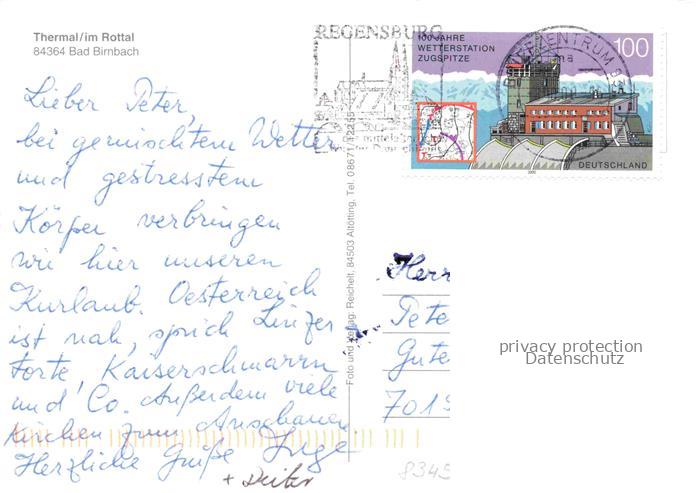 Thermal/im Rottal
84364 Bad Birnbach
Lieber Peter,
bei gemischtem Wetter
und gestresstem
Körper verbringen
wir hier unseren
Kurlaub. Oesterreich
ist nah, sprich Linzer
Torte, Kaiserschmarrn
und Co. Außerdem viele
Kirchen zum Anschauen.
Herzliche Grüße Inge
+ Dieter
Foto und Verlag: Reichelt, 84503 Altötting, Tel. 08671/12255
REGENSBURG
100 JAHRE
WETTERSTATION
ZUGSPITZE
100
DEUTSCHLAND
2000
BRIEFZENTRUM 93
Herr
Pete
Gute
701
8345
privacy protection
Datenschutz